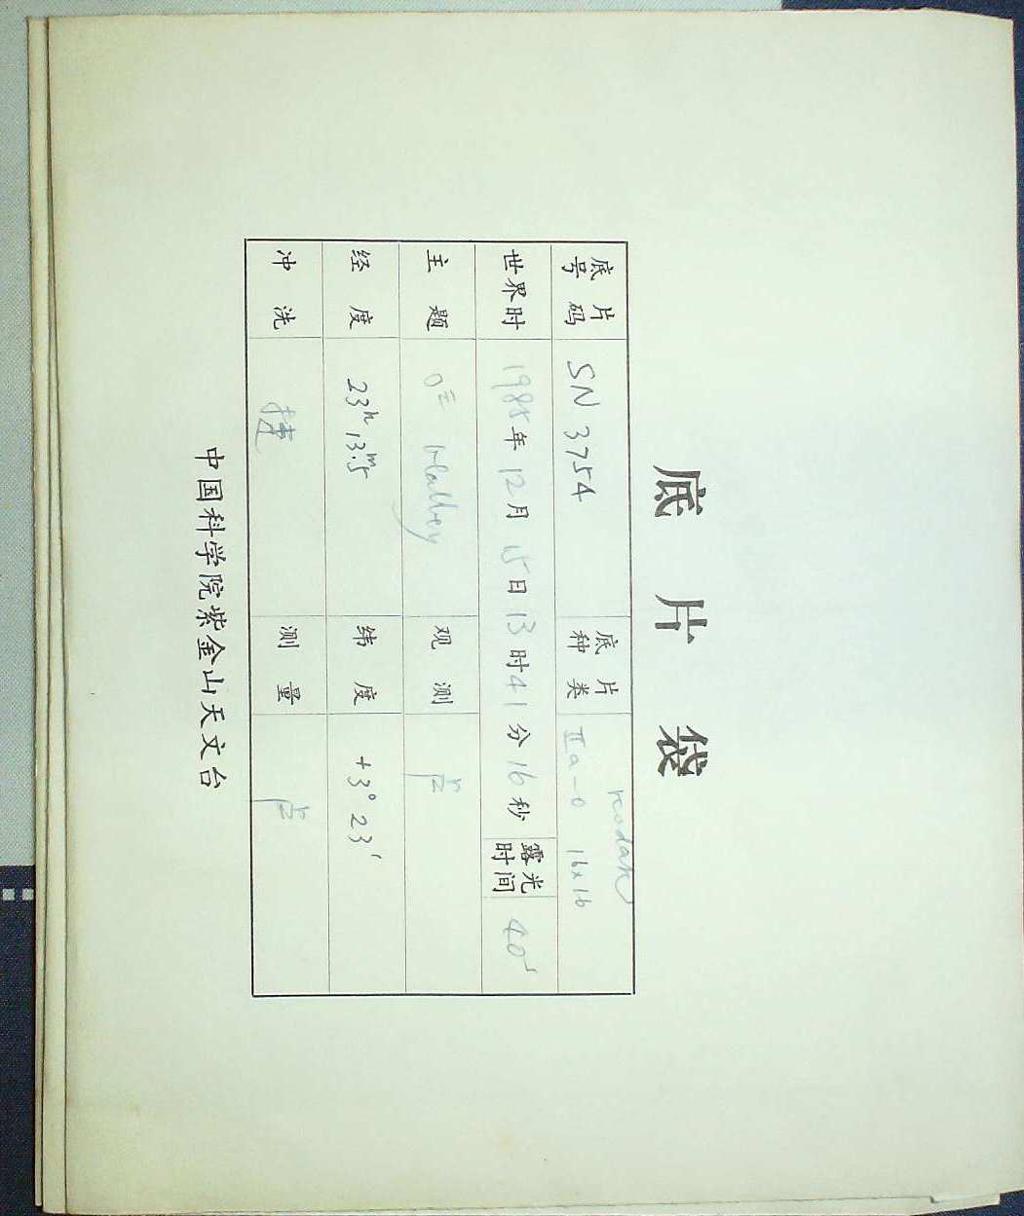 底片袋
底片号码 SN 3754 底片种类 IIa-0 16x16
世界时 1985年12月15日13时41分16秒 露光时间 40
主题 Halley 观测
经度 23h 13m.5 纬度 +3° 23′
冲洗 捷 测量
中国科学院紫金山天文台